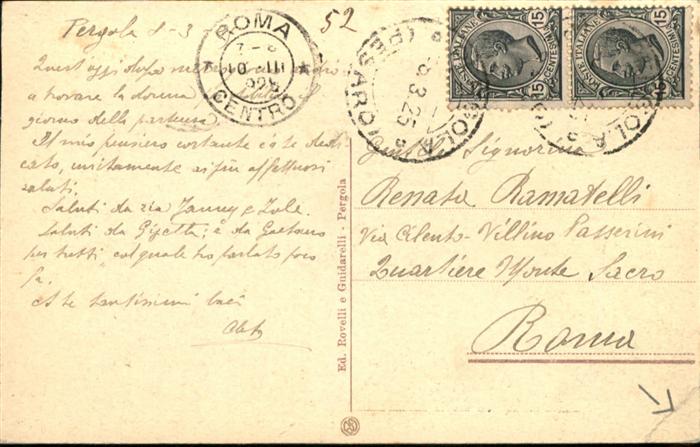 Pergola 8-3
52
Quest'oggi dopo
a trovare la donna
giorno della partenza
Il mio pensiero costante è a te dedi
cato, unitamente ai più affettuosi
saluti.
Saluti da zia Fanny e Iole.
Saluti da Gigetta; e da Gaetano
per tutti, col quale ho parlato poco
fa.
A te tantissimi baci
ROMA
CENTRO
POSTE ITALIANE
15 CENTESIMI 15
POSTE ITALIANE
15 CENTESIMI 15
(PESARO)
8.3.25
Ed. Rovelli e Guidarelli - Pergola
Gentile Signorina
Renata Ramatelli
Via Cilento - Villino Passerini
Quartiere Monte Sacro
Roma